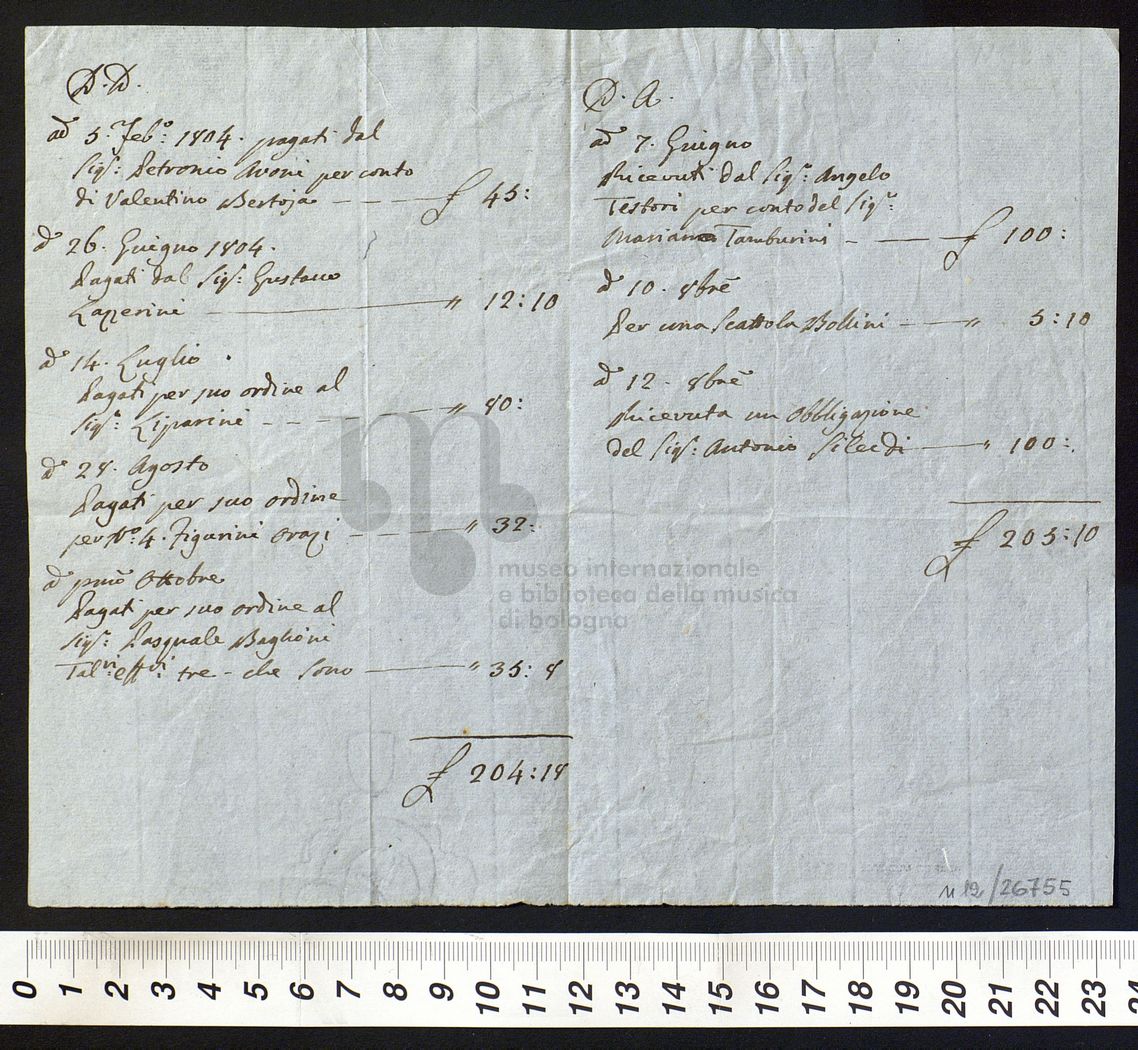 D. D.
ad 5. Feb.º 1804. pagati dal
Sig.r Petronio Avoni per conto
di Valentino Bertoja — — — £ 45:
d.º 26. Giugno 1804.
Pagati dal Sig.r Gustavo
Lazzerini — " 12:10
d.º 14. Luglio.
Pagati per suo ordine al
Sig.r Liparini - - — " 80:
d.º 28. Agosto
Pagati per suo ordine
per N.º 4. Figurini Orazi — — — " 32:
d.º pmo Ottobre
Pagati per suo ordine al
Sig.r Pasquale Baglioni
Tal.ri eff.vi tre - che sono — " 35: 8
£ 204:18
D. A.
ad 7. Giugno
Ricevuti dal Sig.r Angelo
Testori per conto del Sig.r
Tamburini - — — £ 100:
d.º 10. 8bre
Per una Scattola Bollini - — " 5:10
d.º 12. 8bre
Ricevuta un Obbligazione
del Sig.r Antonio — " 100:.
£ 205:10
museo internazionale
e biblioteca della musica
di bologna
n 12/26755
0 1 2 3 4 5 6 7 8 9 10 11 12 13 14 15 16 17 18 19 20 21 22 23 24